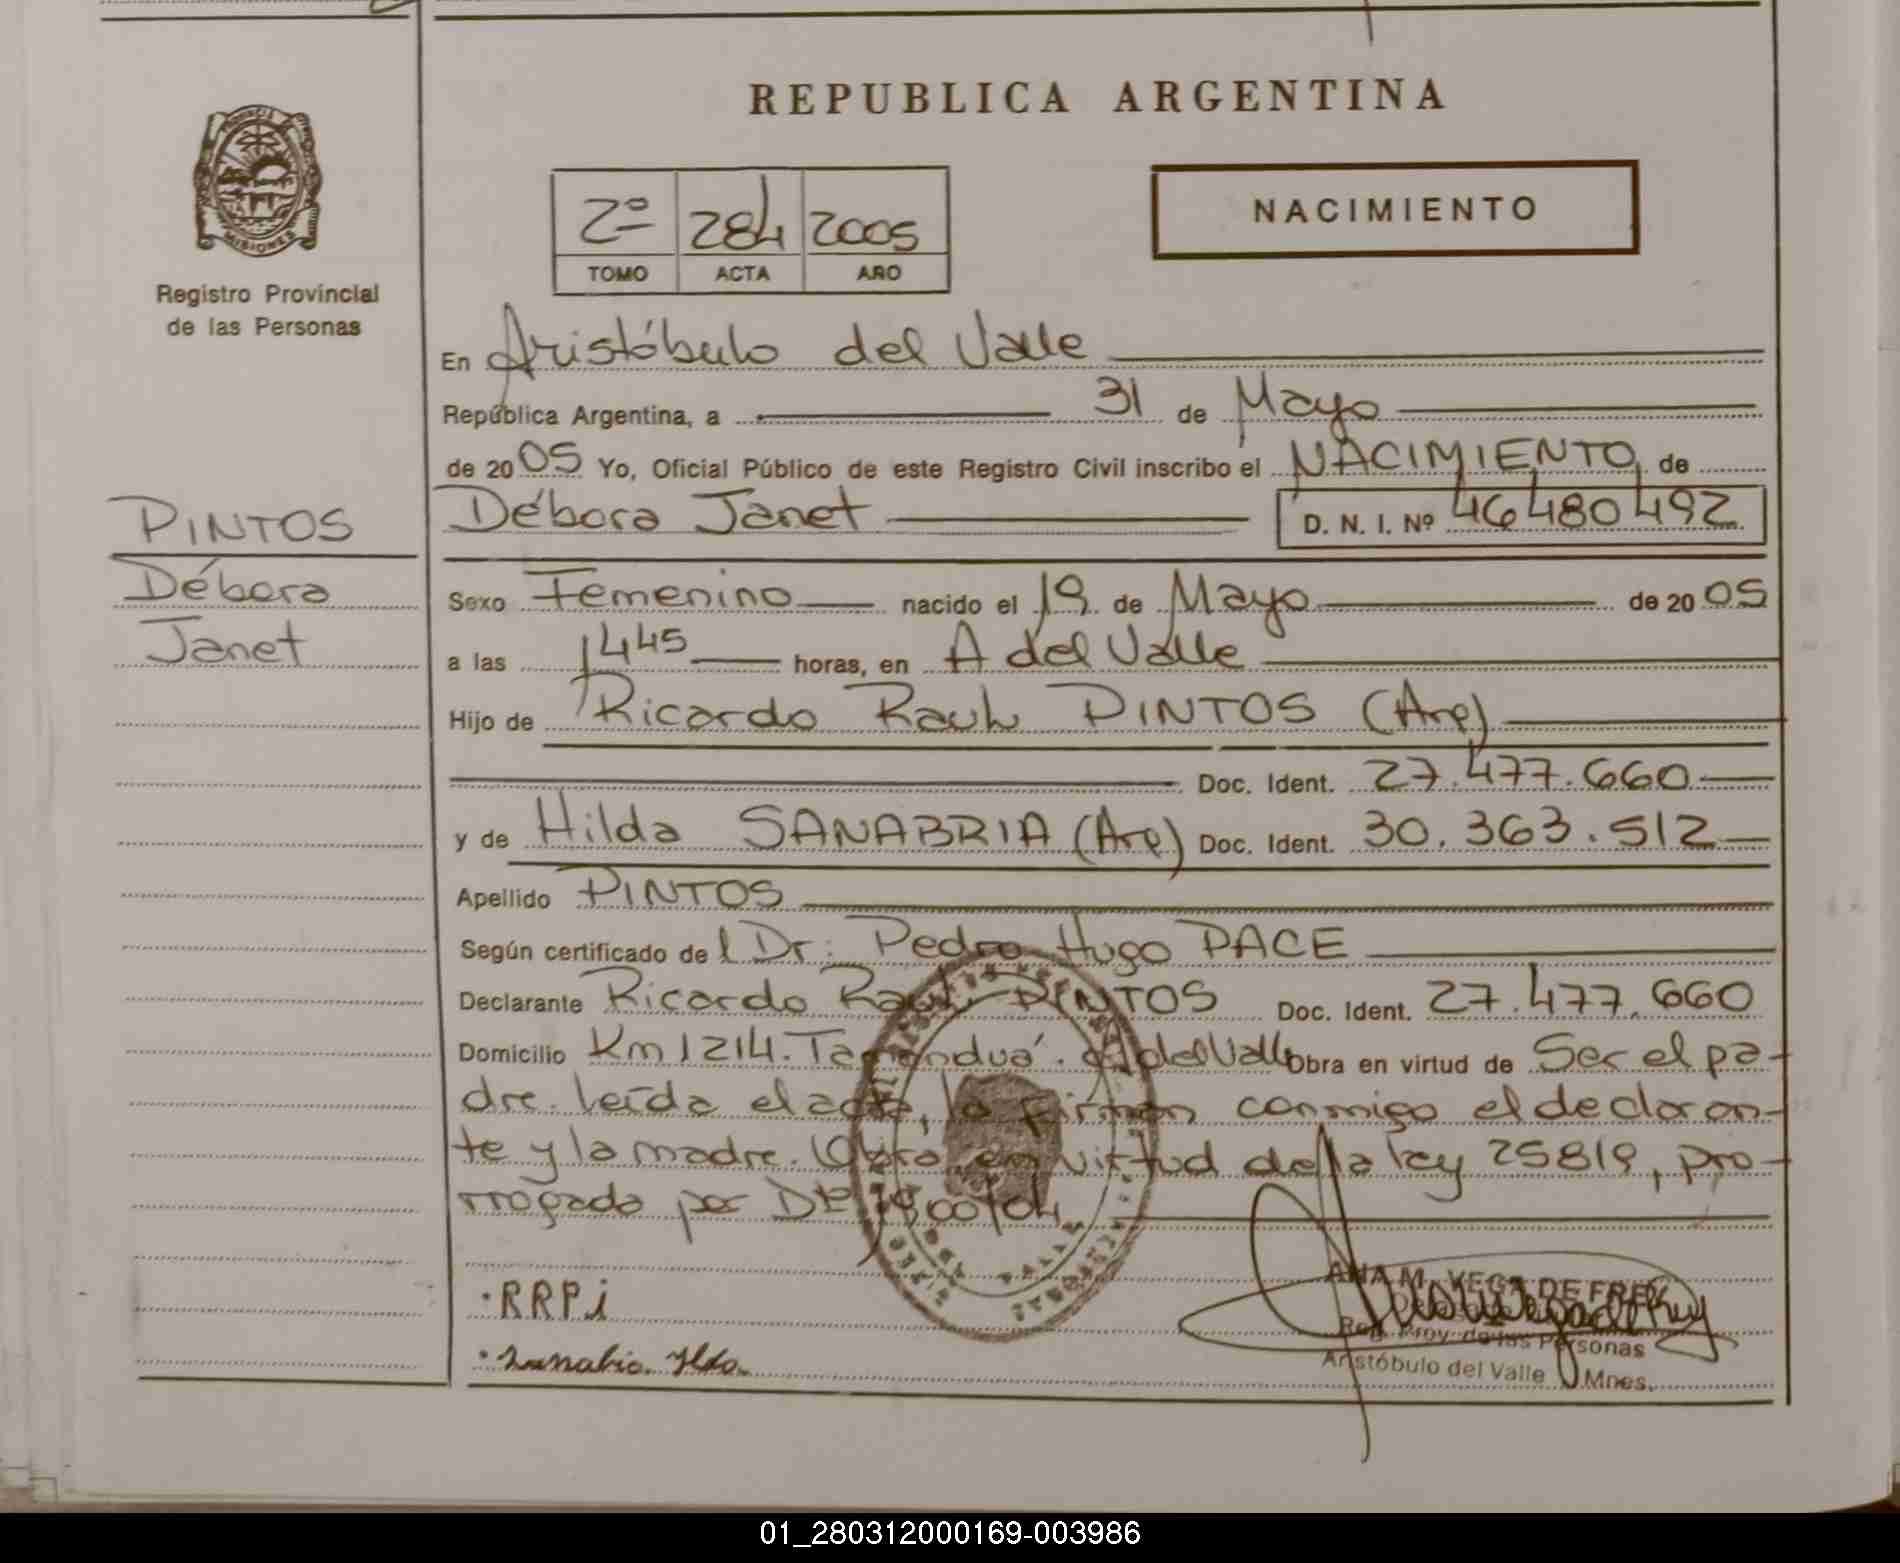 REPUBLICA ARGENTINA
PROVINCIA DE
MISIONES
Registro Provincial
de las Personas
2º 284 2005
TOMO ACTA AÑO
NACIMIENTO
En Aristóbulo del Valle
República Argentina, a 31 de Mayo
de 2005 Yo, Oficial Público de este Registro Civil inscribo el NACIMIENTO de
PINTOS
Débora
Janet
Débora Janet D. N. I. Nº 46480492
Sexo Femenino nacido el 19 de Mayo de 2005
a las 1445 horas, en A del Valle
Hijo de Ricardo Raul PINTOS (Arg)
Doc. Ident. 27.477.660
y de Hilda SANABRIA (Arg) Doc. Ident. 30.363.512
Apellido PINTOS
Según certificado del Dr: Pedro Hugo PACE
Declarante Ricardo Raul PINTOS Doc. Ident. 27.477.660
Domicilio Km 1214. Tamanduá. A del Valle Obra en virtud de Ser el pa-
dre. leída el acta, la firman conmigo el declaran-
te y la madre. (Obro en virtud de la ley 25819, pro-
rrogada por 1900/04
RRPi
ANA M. VEGA DE FREY
Reg. Prov. de las Personas
Aristóbulo del Valle Mnes.
01_280312000169-003986